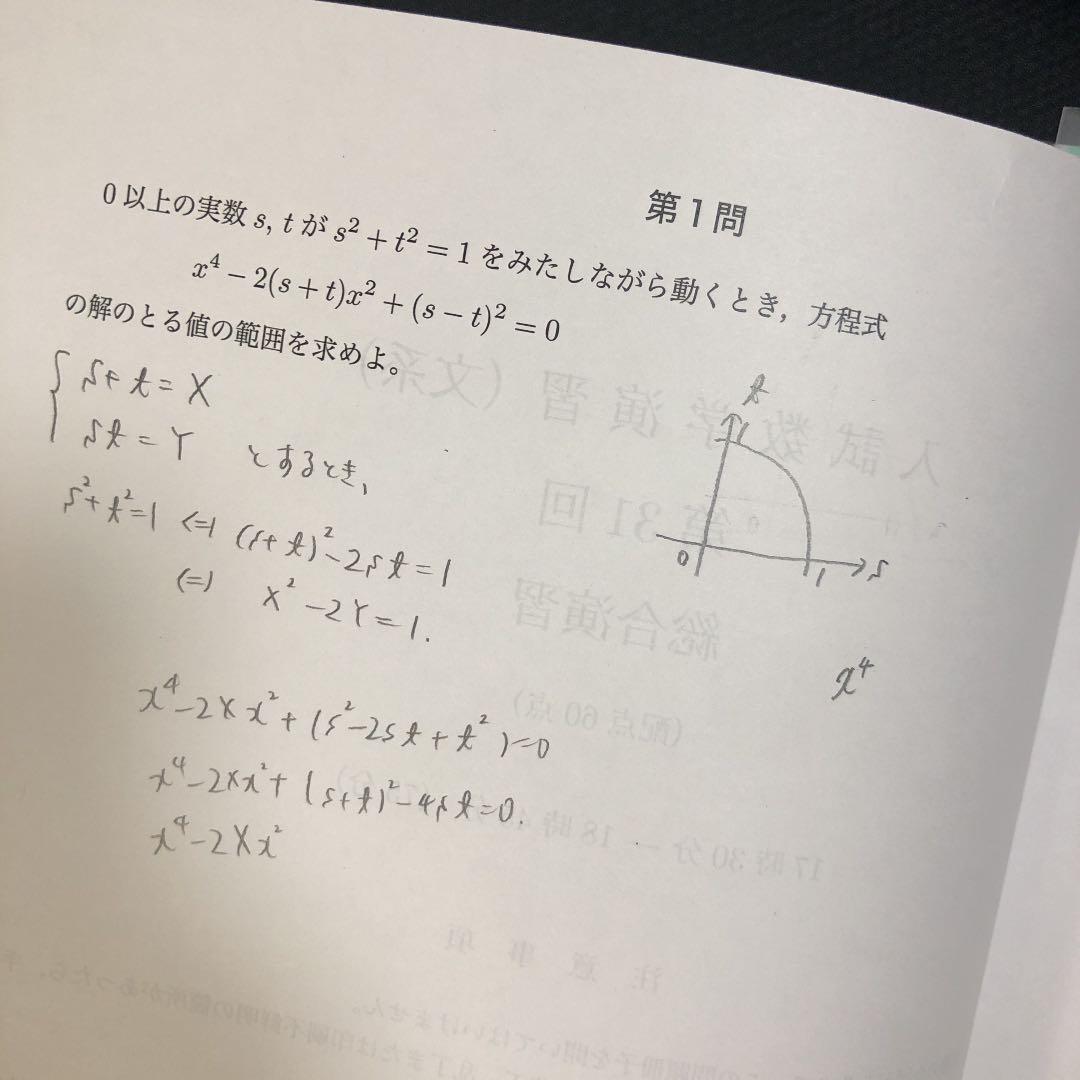 第1問
0以上の実数 s, t が s² + t² = 1 をみたしながら動くとき, 方程式
x⁴ − 2(s + t)x² + (s − t)² = 0
の解のとる値の範囲を求めよ。
{ s + t = X
st = Y とするとき,
s² + t² = 1 ⇔ (s + t)² − 2st = 1
⇔ X² − 2Y = 1.
x⁴ − 2Xx² + (s² − 2st + t²) = 0
x⁴ − 2Xx² + (s + t)² − 4st = 0.
x⁴ − 2Xx²
t
1
0 1 s
x⁴
入試数学演習 (文系)
第31回
総合演習
(配点 60点)
17時30分 − 18時4
注意事項